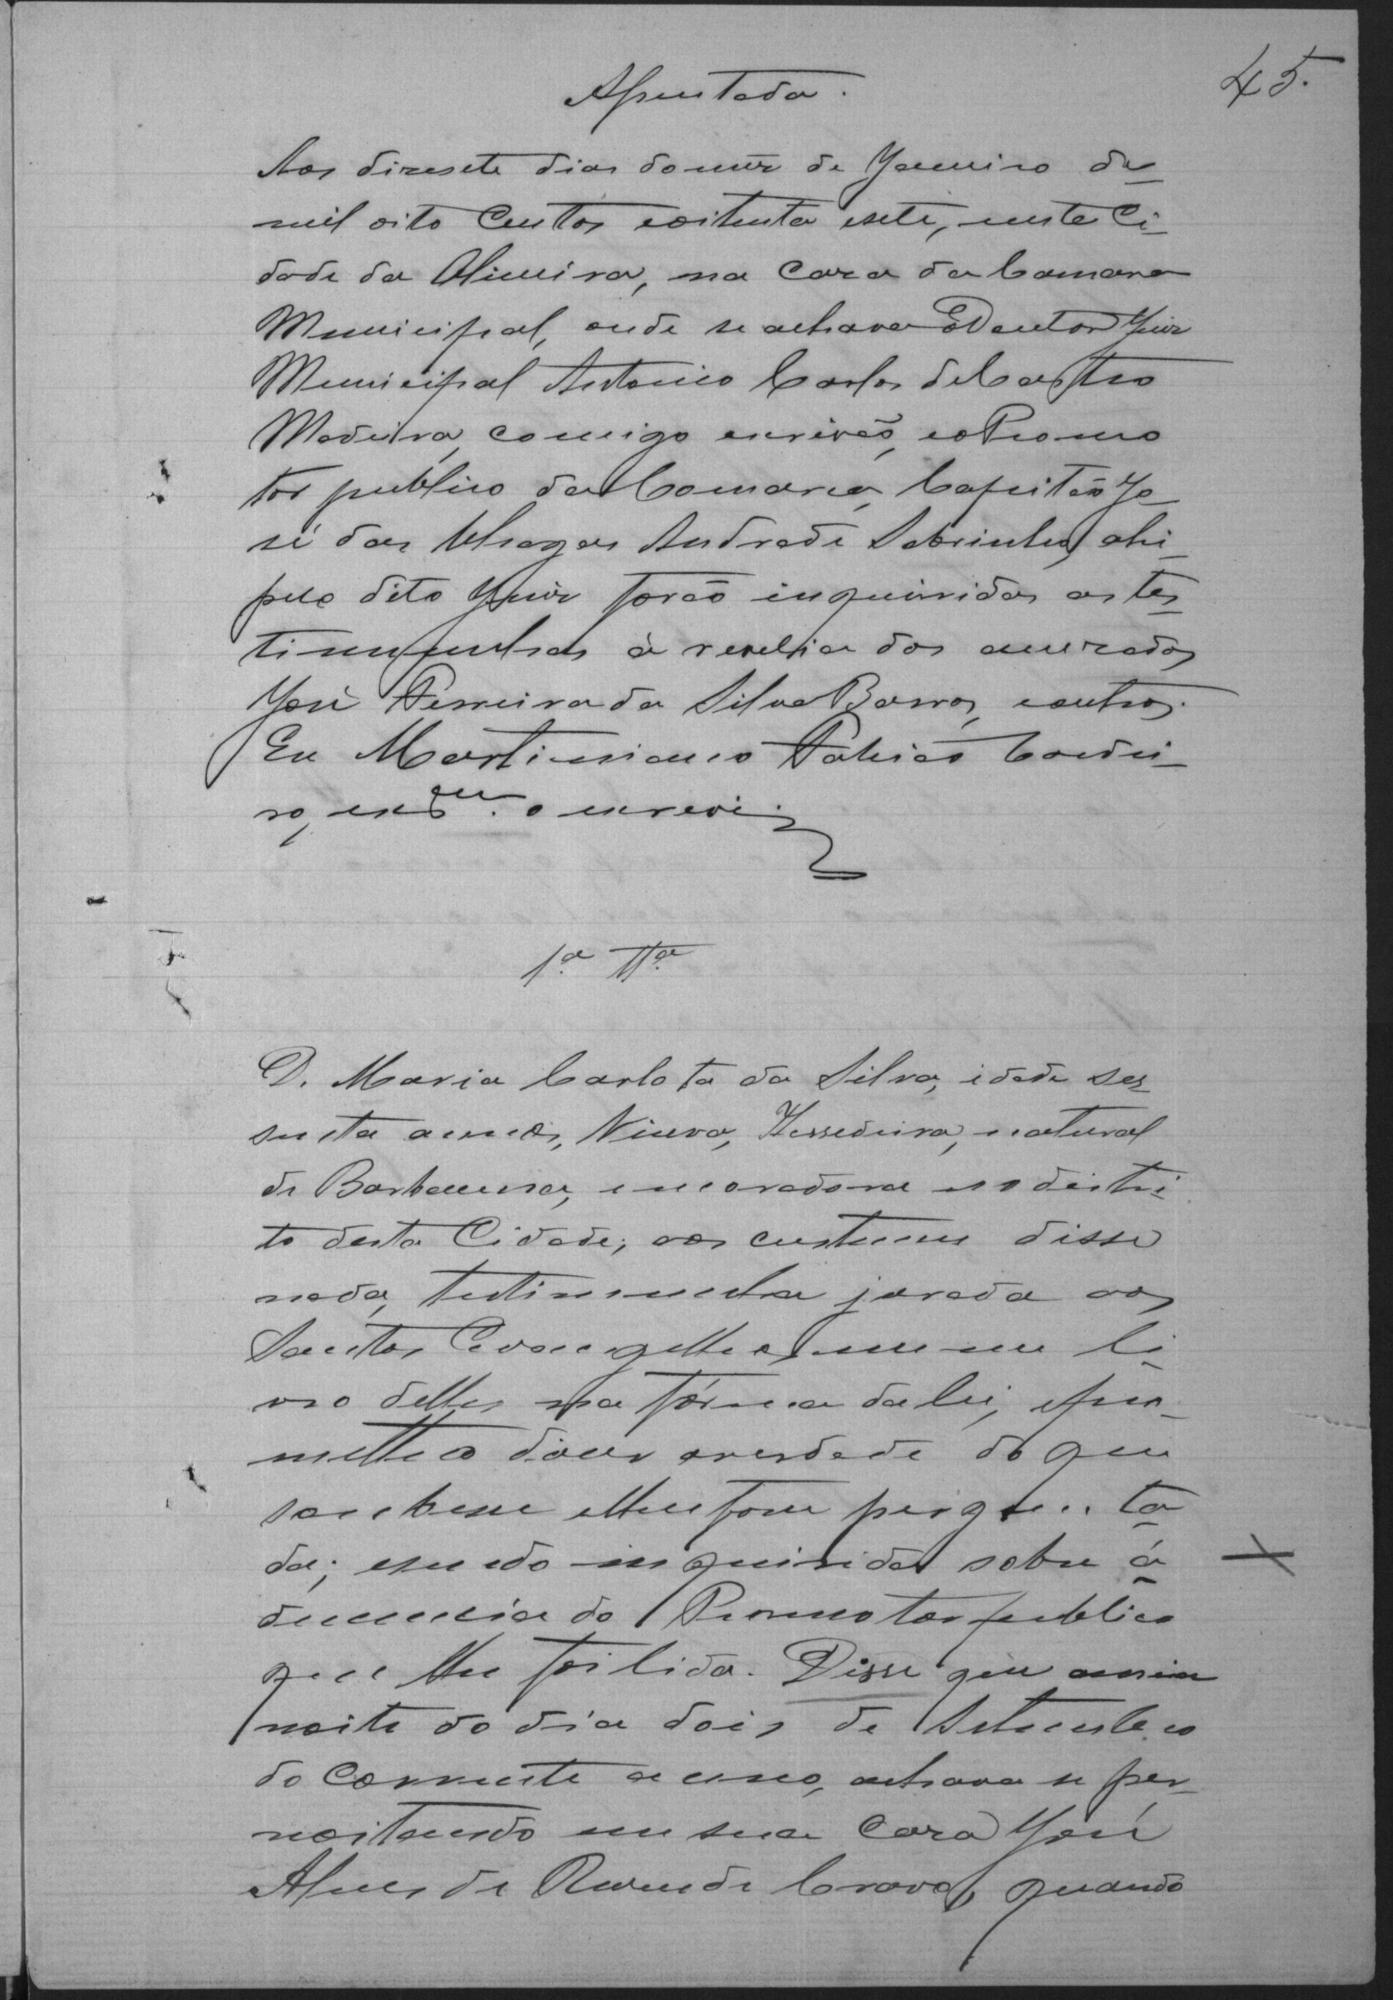 45.
Assentada.
Aos dizesete dias do mez de Janeiro de
mil oito centos e oitenta e sete, nesta Ci-
dade da Oliveira, na casa da Camara
Municipal, onde se achava o Doutor Juiz
Municipal Antonio Carlos de Castro
Madeira, comigo escrivão, e o Promo
tor publico da Comarca, Capitão Jo-
sé das Chagas Andrade Sobrinho, ahi-
pelo dito Juiz forão inqueridas as tes-
timunhas à revelia dos accusados
José Ferreira da Silva Barros, e outros.
Eu Martiniano Cordei-
ro, escram. o escrevi.
1.a Tta
D. Maria Carlota da Silva, idade ses-
senta annos, Viuva, natural
de Barbacena, e moradora no distri-
to desta Cidade; aos custumes disse
nada, testimunha jurada aos
Santos Evangelhos em um li-
vro delles na fórma da lei, e pro-
metteo dizer averdade do que
soubesse e lhe fosse pergunta-
da; e sendo inquirida sobre á
denuncia do Promotor publico
que lhe foi lida. Disse que
noite do dia dois de Setembro
do corrente anno, achava se per-
noitando em sua casa José
Alves de Resende Cravo, quando